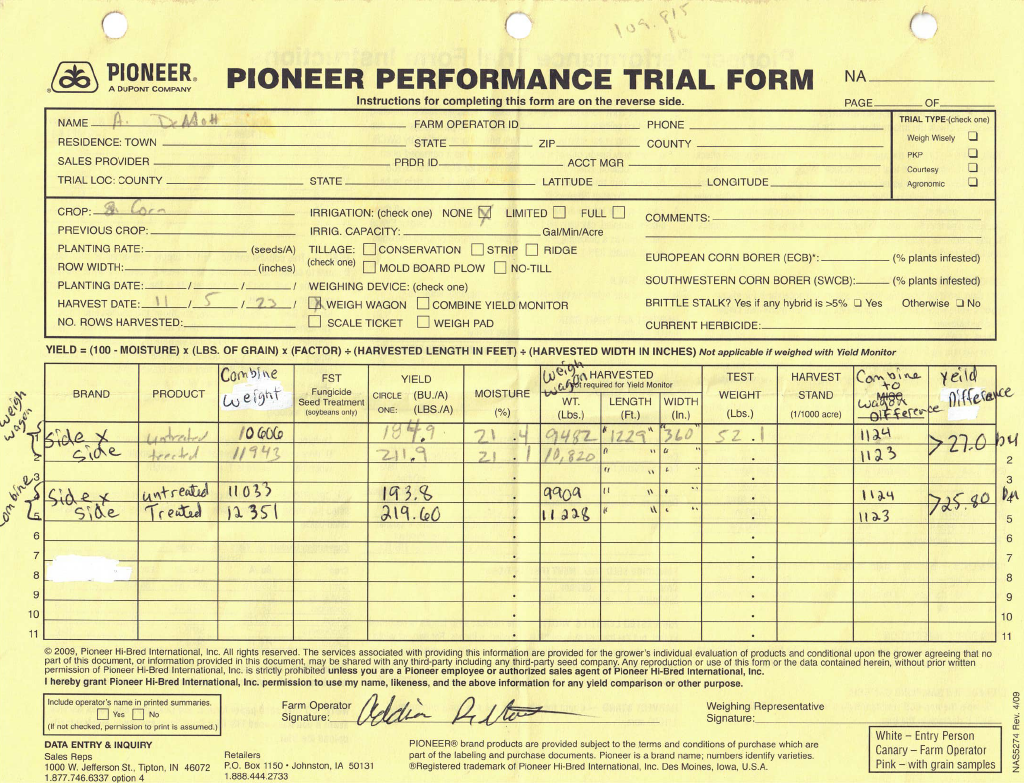 109.815
PIONEER®
A DUPONT COMPANY
PIONEER PERFORMANCE TRIAL FORM
NA
Instructions for completing this form are on the reverse side.
PAGE OF
NAME A. DeMott FARM OPERATOR ID PHONE
TRIAL TYPE-(check one)
RESIDENCE: TOWN STATE ZIP COUNTY
Weigh Wisely ❑
SALES PROVIDER PRDR ID ACCT MGR
PKP ❑
Courtesy ❑
TRIAL LOC: COUNTY STATE LATITUDE LONGITUDE
Agronomic ❑
CROP: Corn IRRIGATION: (check one) NONE ☒ LIMITED ☐ FULL ☐ COMMENTS:
PREVIOUS CROP: IRRIG. CAPACITY: Gal/Min/Acre
PLANTING RATE: (seeds/A) TILLAGE: ☐ CONSERVATION ☐ STRIP ☐ RIDGE
(check one) ☐ MOLD BOARD PLOW ☐ NO-TILL
EUROPEAN CORN BORER (ECB)*: (% plants infested)
ROW WIDTH: (inches)
SOUTHWESTERN CORN BORER (SWCB): (% plants infested)
PLANTING DATE: / / / WEIGHING DEVICE: (check one)
HARVEST DATE: 11 / 5 / 23 / ☒ WEIGH WAGON ☐ COMBINE YIELD MONITOR
BRITTLE STALK? Yes if any hybrid is >5% ❑ Yes Otherwise ❑ No
NO. ROWS HARVESTED: ☐ SCALE TICKET ☐ WEIGH PAD
CURRENT HERBICIDE:
YIELD = (100 - MOISTURE) x (LBS. OF GRAIN) x (FACTOR) ÷ (HARVESTED LENGTH IN FEET) ÷ (HARVESTED WIDTH IN INCHES) Not applicable if weighed with Yield Monitor
BRAND PRODUCT Combine weight FST Fungicide Seed Treatment (soybeans only) YIELD CIRCLE ONE: (BU./A) (LBS./A) MOISTURE (%) Weigh wagon HARVESTED Not required for Yield Monitor WT. (Lbs.) LENGTH (Ft.) WIDTH (In.) TEST WEIGHT (Lbs.) HARVEST STAND (1/1000 acre) Combine to wagon DIFFERENCE Yeild Difference
weigh wagon
1 Side x untreated 10606 184.9 21.4 9482 "1229" "360" 52.1 1124 >27.0 bu
2 side treated 11943 211.9 21.1 10,820 " " " " 1123 2
3 " " " " 3
Combine
Side x untreated 11033 193.8 9909 " " " " 1124 >25.80 bu
5 side Treated 12351 219.60 11228 " " " " 1123 5
6 6
7 7
8 8
9 9
10 10
11 11
© 2009, Pioneer Hi-Bred International, Inc. All rights reserved. The services associated with providing this information are provided for the grower's individual evaluation of products and conditional upon the grower agreeing that no
part of this document, or information provided in this document, may be shared with any third-party including any third-party seed company. Any reproduction or use of this form or the data contained herein, without prior written
permission of Pioneer Hi-Bred International, Inc. is strictly prohibited unless you are a Pioneer employee or authorized sales agent of Pioneer Hi-Bred International, Inc.
I hereby grant Pioneer Hi-Bred International, Inc. permission to use my name, likeness, and the above information for any yield comparison or other purpose.
Include operator's name in printed summaries.
☐ Yes ☐ No
(If not checked, permission to print is assumed.)
Farm Operator
Signature:
Weighing Representative
Signature:
White – Entry Person
Canary – Farm Operator
Pink – with grain samples
DATA ENTRY & INQUIRY
Sales Reps
1000 W. Jefferson St., Tipton, IN 46072
1.877.746.6337 option 4
Retailers
P.O. Box 1150 • Johnston, IA 50131
1.888.444.2733
PIONEER® brand products are provided subject to the terms and conditions of purchase which are
part of the labeling and purchase documents. Pioneer is a brand name; numbers identify varieties.
®Registered trademark of Pioneer Hi-Bred International, Inc. Des Moines, Iowa, U.S.A.
NAS5274 Rev. 4/09